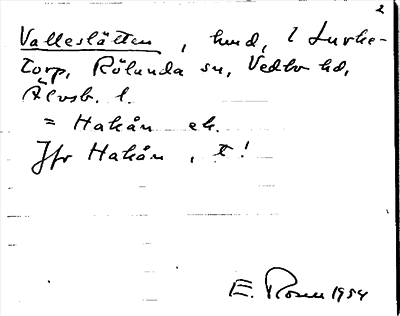 2
Valleslätten, hmd, l Lurke-
torp, Rölanda sn, Vedbo hd,
Älvsb. l.
= Hakån ek.
Jfr Hakån, t!
E. Rosen 1954